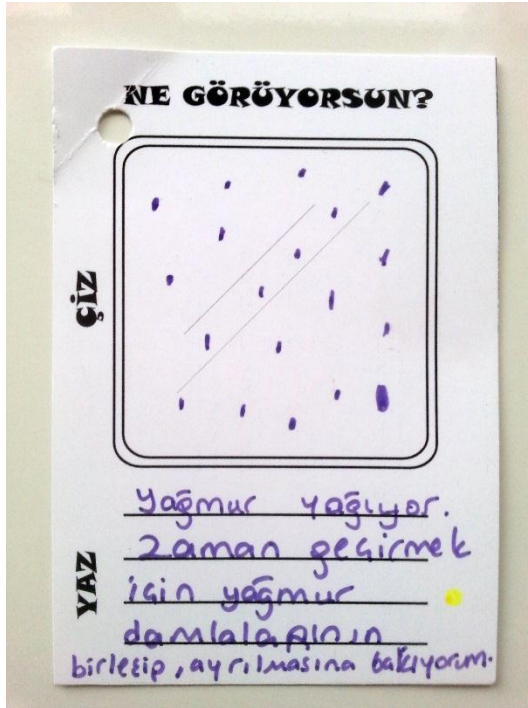 NE GÖRÜYORSUN?
ÇİZ
YAZ
Yağmur yağıyor.
Zaman geçirmek
için yağmur
damlalarının
birleşip, ayrılmasına bakıyorum.